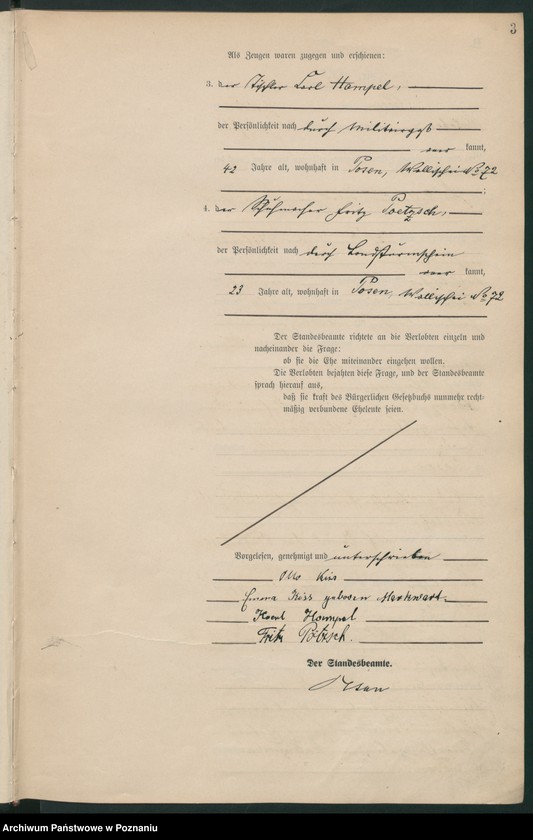 3
Als Zeugen waren zugegen und erschienen:
3. der Tischler Carl Hampel,
der Persönlichkeit nach durch Militairpaß
kannt,
42 Jahre alt, wohnhaft in Posen, Wallischei No 72
;
4. der Schuhmacher Fritz Poetzsch,
der Persönlichkeit nach durch Landsturmschein
kannt,
23 Jahre alt, wohnhaft in Posen, Wallischei No 72
Der Standesbeamte richtete an die Verlobten einzeln und
nacheinander die Frage:
ob sie die Ehe miteinander eingehen wollen.
Die Verlobten bejahten diese Frage, und der Standesbeamte
sprach hierauf aus,
daß sie kraft des Bürgerlichen Gesetzbuchs nunmehr recht-
mäßig verbundene Eheleute seien.
Vorgelesen, genehmigt und unterschrieben
Otto Kiss
Emma Kiss geboren Markwart
Karl Hampel
Fritz Pötzsch.
Der Standesbeamte.
Archiwum Państwowe w Poznaniu